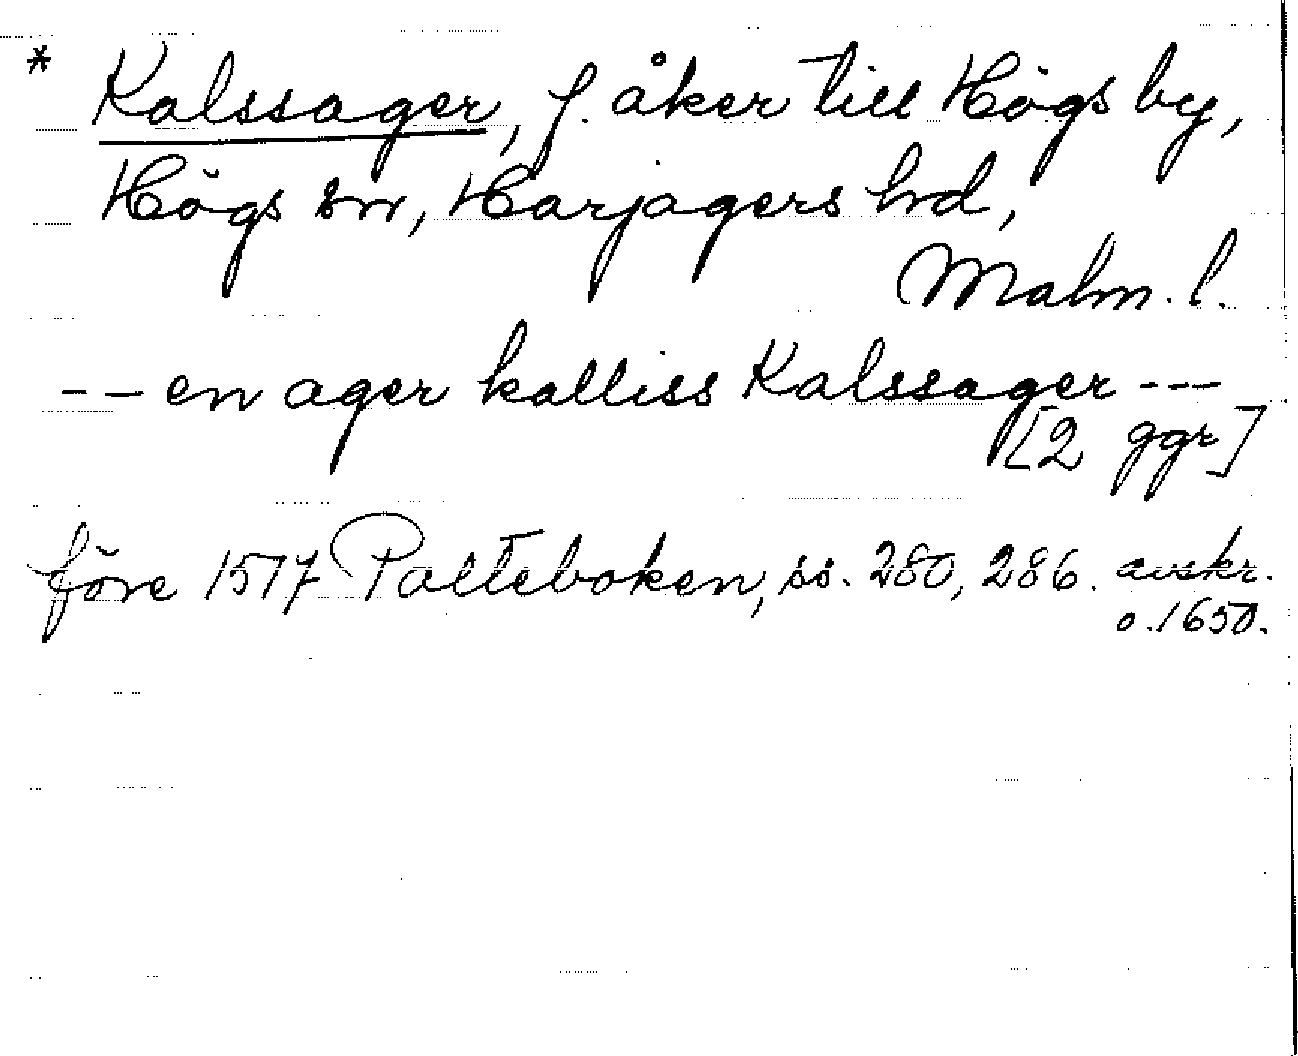 * Kalssager, f. åker till Högs by,
Högs sn, Harjagers hd,
Malm. l.
-- en ager kalliss Kalssager ---
[2 ggr]
före 1517 Palteboken, ss. 280, 286. avskr.
o. 1650.